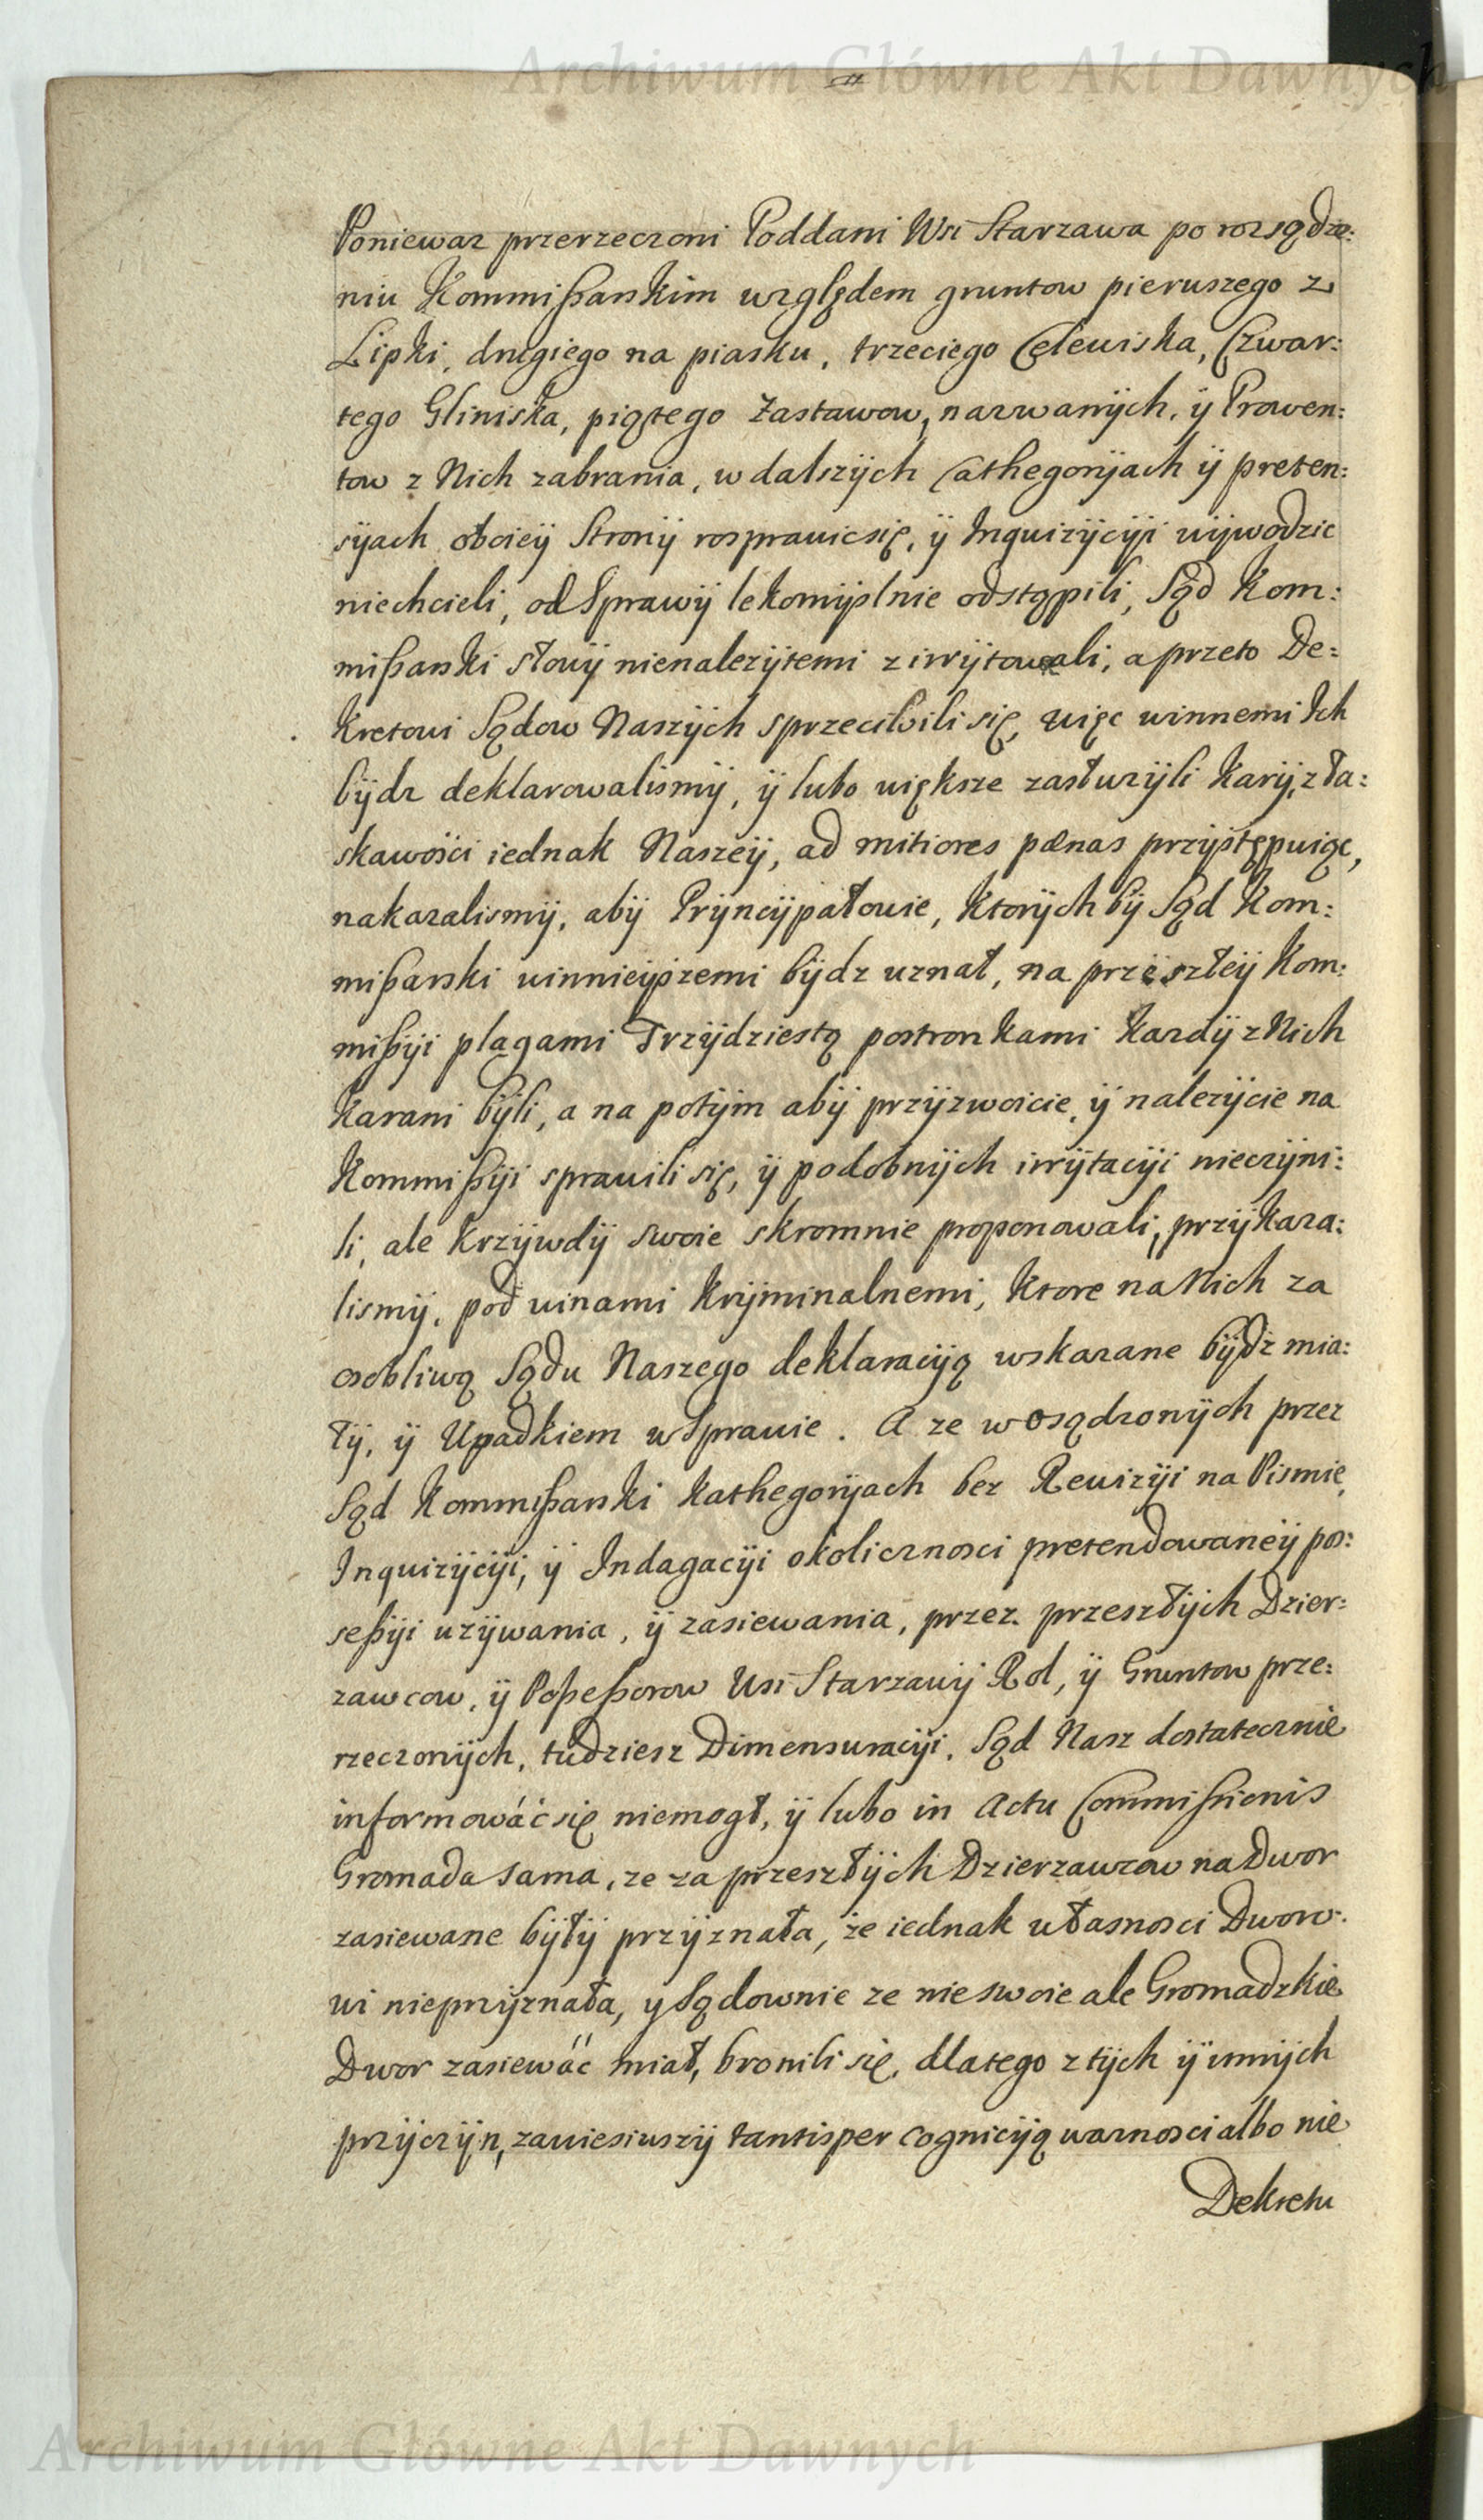 Archiwum Główne Akt Dawnych
Poniewaz przerzeczoni Poddani Wsi Starzawa po rozsądze:
niu Kommißarskim względem gruntow pierwszego z
Lipki, drugiego na piasku, trzeciego Celewiska, Czwar:
tego Gliniska, piątego Zastawow, nazwanÿch, ÿ Prowen:
tow z Nich zabrania, w dalszÿch Cathegorÿach ÿ preten:
sÿach oboieÿ Stronÿ rosprawic się, ÿ InquizÿcÿÏ wÿwodzic
niechcieli, od Sprawÿ lekomÿslnie odstąpili, Sąd Kom:
mißarski słowÿ nienalezÿtemi zirrÿtowali, a przeto De:
kretowi Sądow Naszÿch sprzeciwili się, więc winnemi Ich
bÿdz deklarowalismÿ, ÿ lubo większe zasłuzÿli karÿ, z ła:
skawości iednak Naszeÿ, ad mitiores pænas przÿstępuiąc,
nakazalismÿ, abÿ Prÿncÿpałowie, ktorÿch bÿ Sąd Kom:
mißarski winnieÿszemi bÿdz uznał, na przÿszłeÿ Kom:
mißÿi plagami Trzÿdziestą postronkami kazdÿ z Nich
karani bÿli, a na potÿm abÿ przÿzwoicie, ÿ nalezÿcie na
Kommißÿi sprawili się, ÿ podobnÿch irrÿtacÿi nieczÿni:
li, ale krzÿwdÿ swoie skromnie proponowali, przÿkaza:
lismÿ, pod winami krÿminalnemi, ktore na Nich za
osobliwą Sądu Naszego deklaracÿą wskazane bÿdź mia:
łÿ, ÿ Upadkiem w Sprawie. A ze w osądzonÿch przez
Sąd Kommißarski kathegorÿach bez Rewizÿi na Pismie,
Inquizÿcÿi, ÿ Indagacÿi okolicznosci pretendowaneÿ pos:
seßÿi uzÿwania, ÿ zasiewania, przez przeszłÿch Dzier:
zawcow, ÿ Poßeßorow Wsi Starzawÿ Rol, ÿ Gruntow prze:
rzeczonÿch, tudziesz Dimensuracÿi, Sąd Nasz dostatecznie
informowáć się niemogł, ÿ lubo in Actu Commißionis
Gromada sama, ze za przeszłÿch Dzierzawcow na Dwor
zasiewane bÿłÿ przÿznała, że iednak własnosci Dworo:
wi nieprzÿznała, y Sądownie ze nie swoie ale Gromadzkie
Dwor zasiewáć miał, bronili się, dlatego z tÿch ÿ innÿch
przÿczÿn, zawiesiwszÿ tantisper cognicÿą waznosci albo nie
Dekretu
Archiwum Główne Akt Dawnych